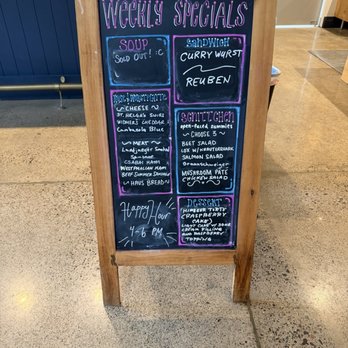 WEEKLY SPECIALS
SOUP
SOUP OUT! :C
SANDWICH
CURRY WURST
REUBEN
CHEESE
ST. HELGA'S SWISS
WIDMER'S CHEDDAR
Cambozola Blue
MEAT
Landjaeger
WESTPHALIAN HAM
BEEF SUMMER SAUSAGE
HAUS BREAD
SCHNITTCHEN
open-faced sammies
CHOOSE 3
BEET SALAD
LOX W/ HORSERADISH
SALMON SALAD
Braunschweiger
MUSHROOM PATÉ
CHICKEN SALAD
Happy Hour
4-6 PM
DESSERT
HIMBEER TORTE
(RASPBERRY
CAKE)
LIGHT CAKE W/ SOUR
CREAM FILLING
AND RASPBERRY
TOPPING